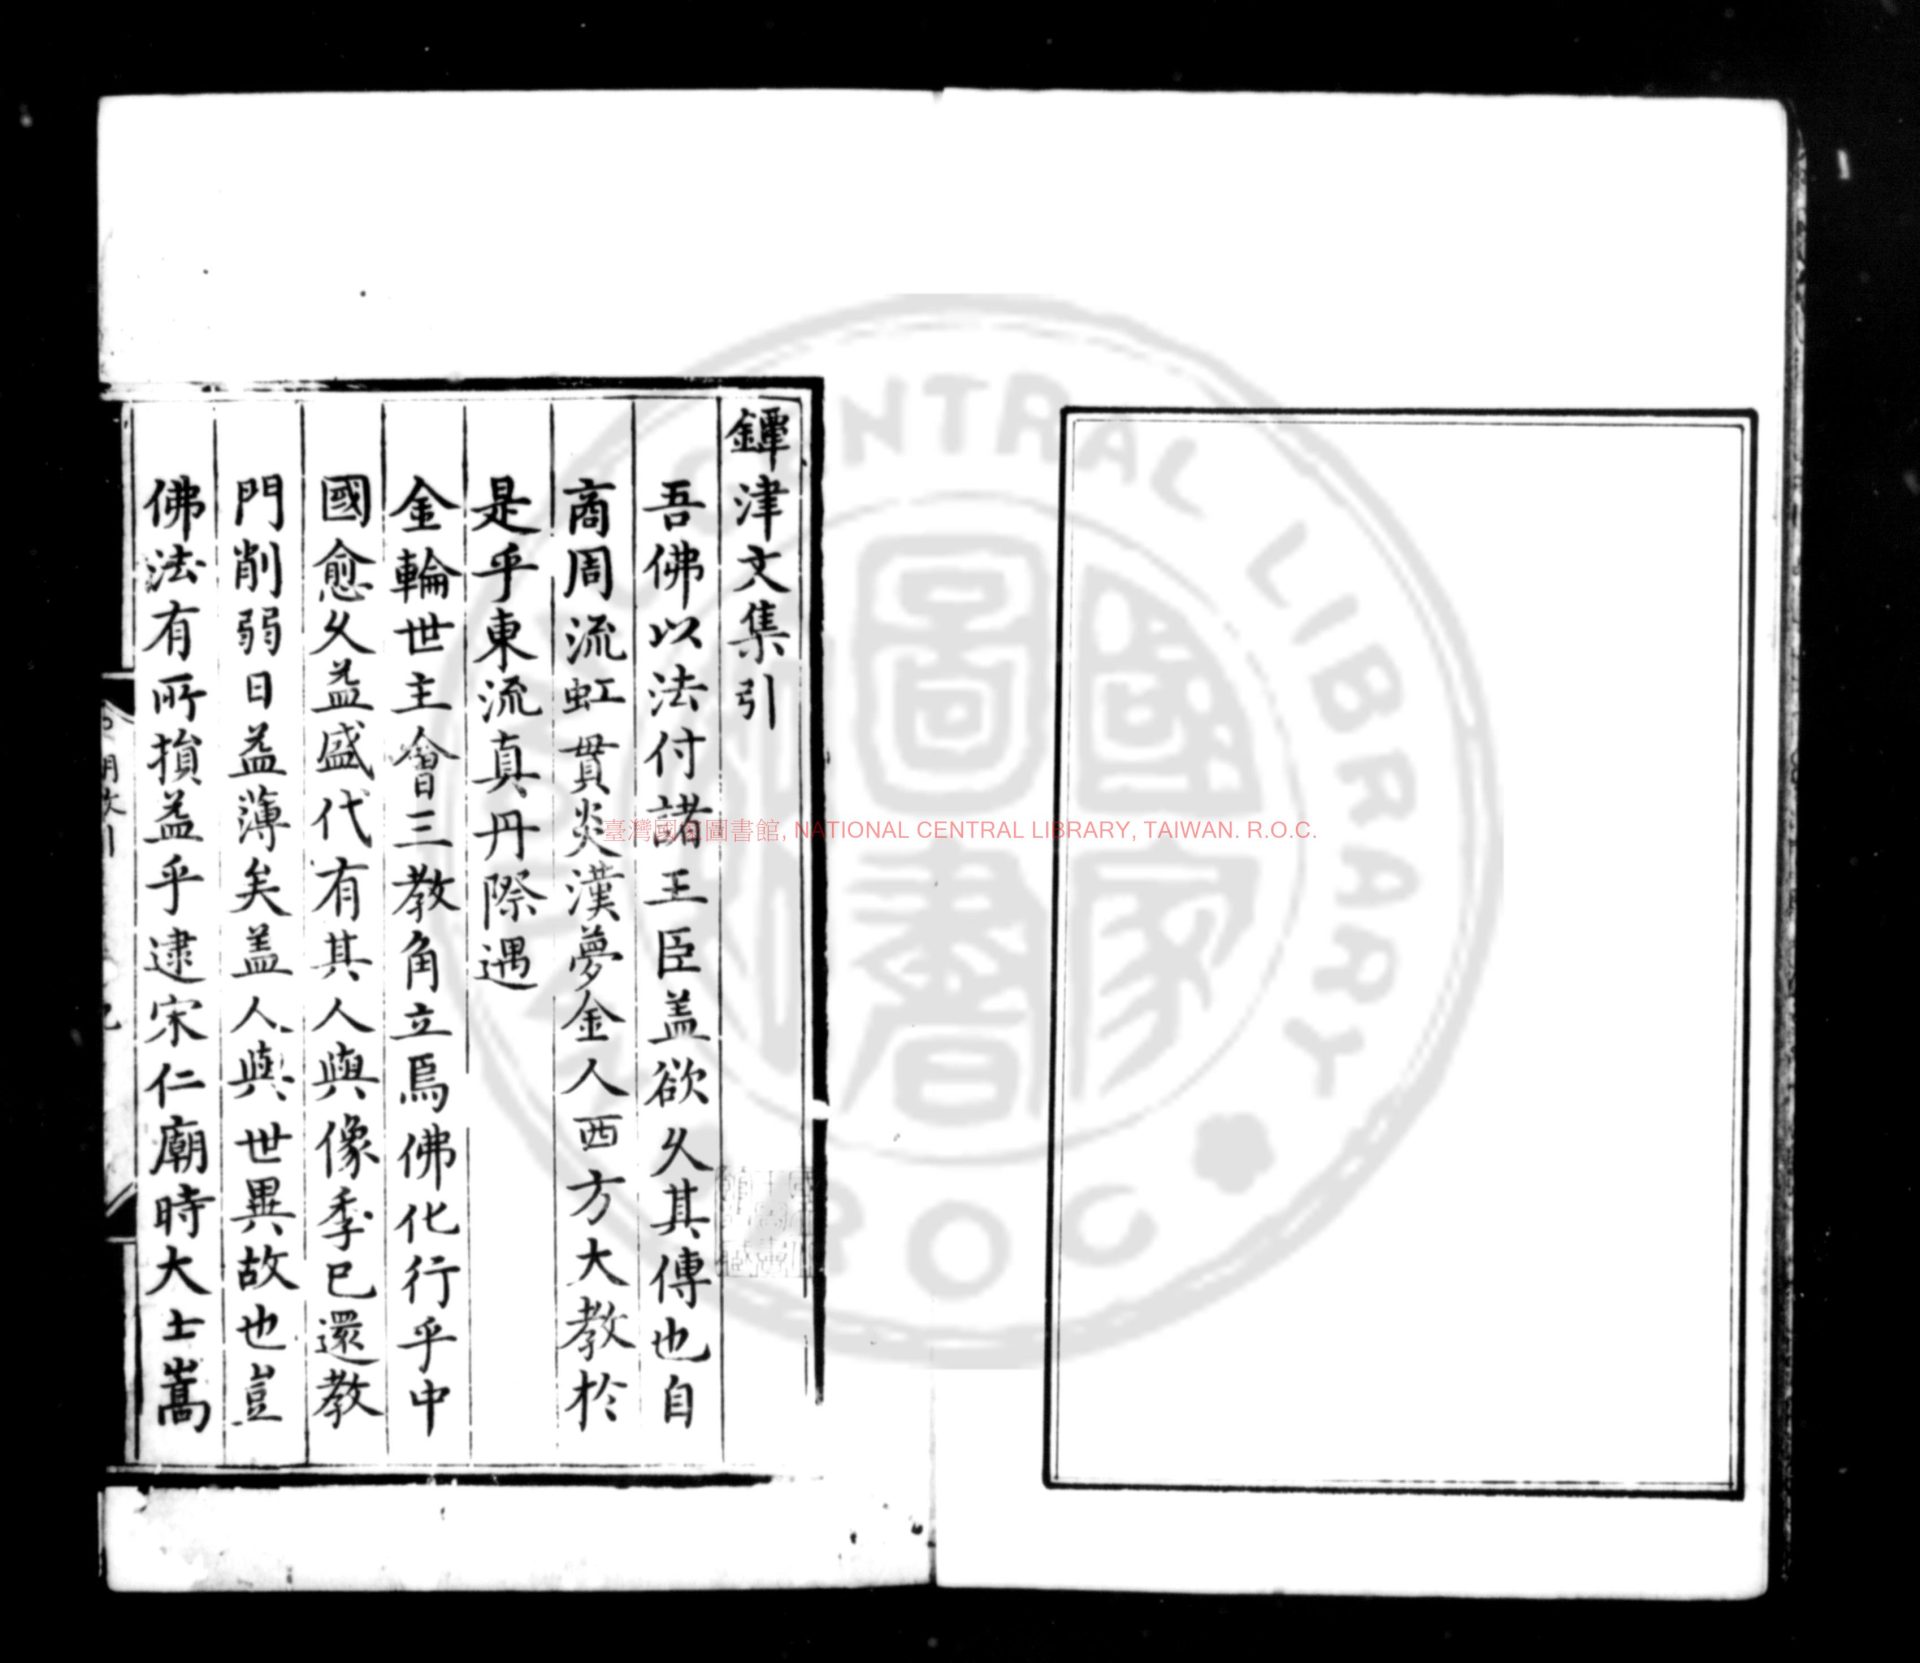 鐔津文集引
吾佛以法付諸王臣盖欲久其傳也自
商周流虹貫炎漢夢金人西方大教於
是乎東流真丹際遇
金輪世主會三教角立焉佛化行乎中
國愈久益盛代有其人與像季已還教
門削弱日益薄矣盖人與世異故也豈
佛法有所損益乎逮宋仁廟時大士嵩
臺灣國家圖書館, NATIONAL CENTRAL LIBRARY, TAIWAN. R.O.C.
國家圖書
CENTRAL LIBRARY
ROC